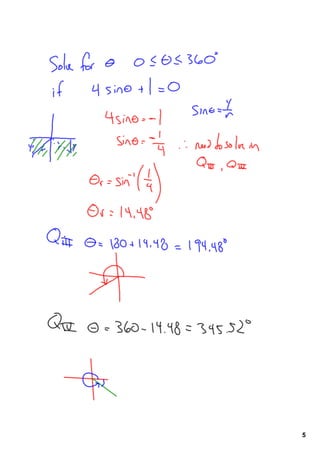 Solve for θ 0≤θ≤360°
if 4 sinθ + 1 = 0
Sinθ = y/r
4sinθ = -1
Sinθ = -1/4 ∴ need to solve in
QIII, QIII
θr = sin⁻¹(1/4)
θr = 14.48°
QIII θ = 180 + 14.48 = 194.48°
QIV θ = 360 - 14.48 = 345.52°
5